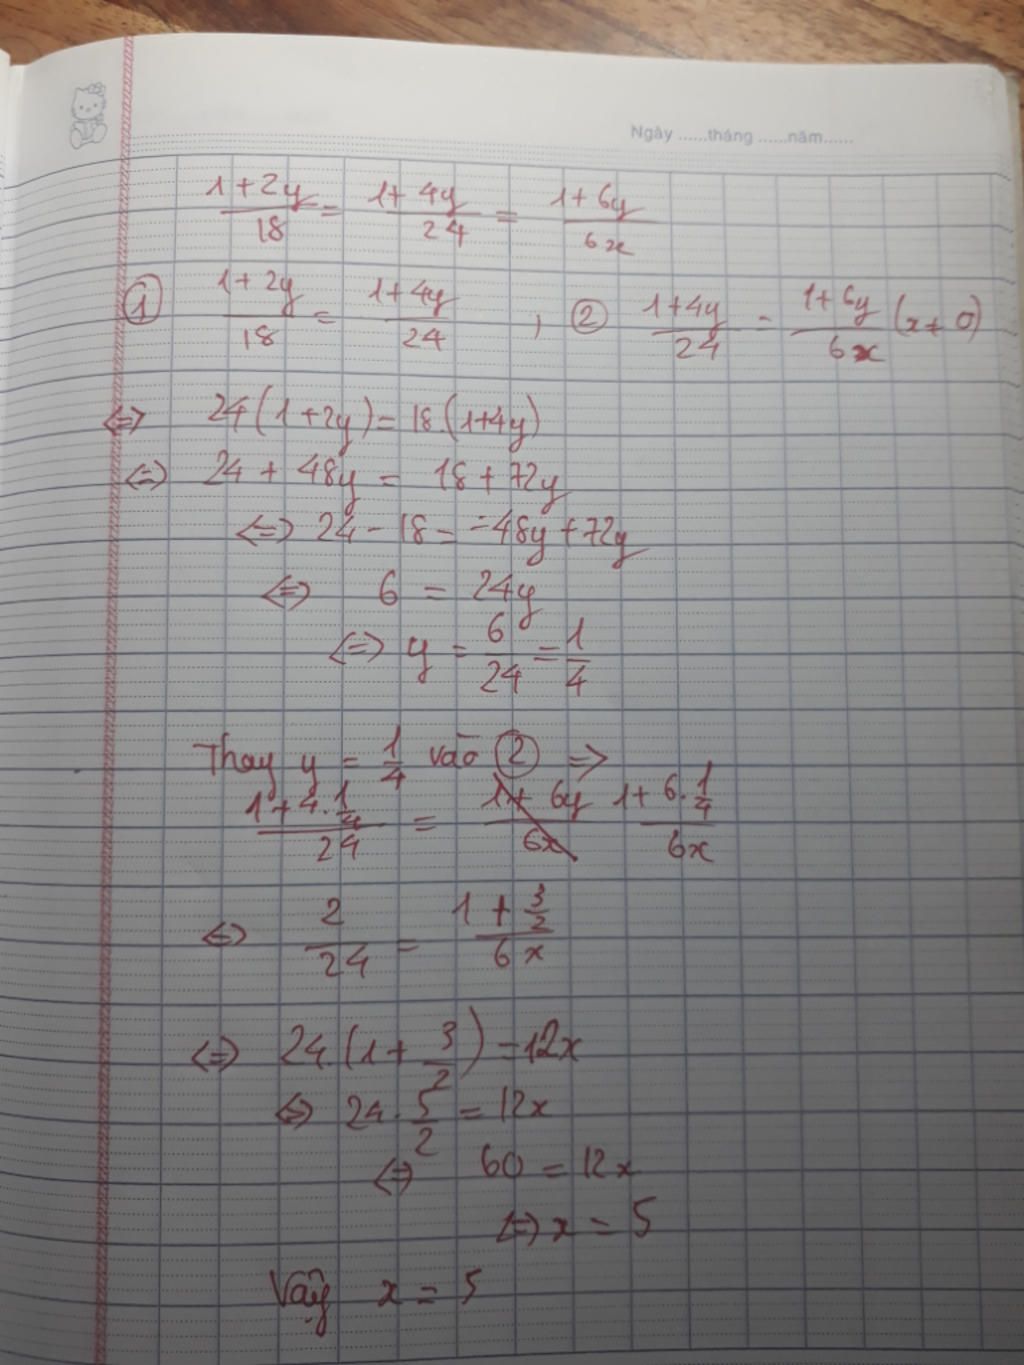 Ngày ......tháng ......năm......
1+2y/18 = 1+4y/24 = 1+6y/6x
① 1+2y/18 = 1+4y/24 , ② 1+4y/24 = 1+6y/6x (x≠0)
<=> 24(1+2y) = 18.(1+4y)
<=> 24 + 48y = 18 + 72y
<=> 24 - 18 = -48y + 72y
<=> 6 = 24y
<=> y = 6/24 = 1/4
Thay y = 1/4 vào ② =>
1+4.1/4/24 = 1+6y/6x 1+6.1/4/6x
<=> 2/24 = 1+3/2/6x
<=> 24.(1+3/2) = 12x
<=> 24.5/2 = 12x
<=> 60 = 12x
<=> x = 5
Vậy x = 5